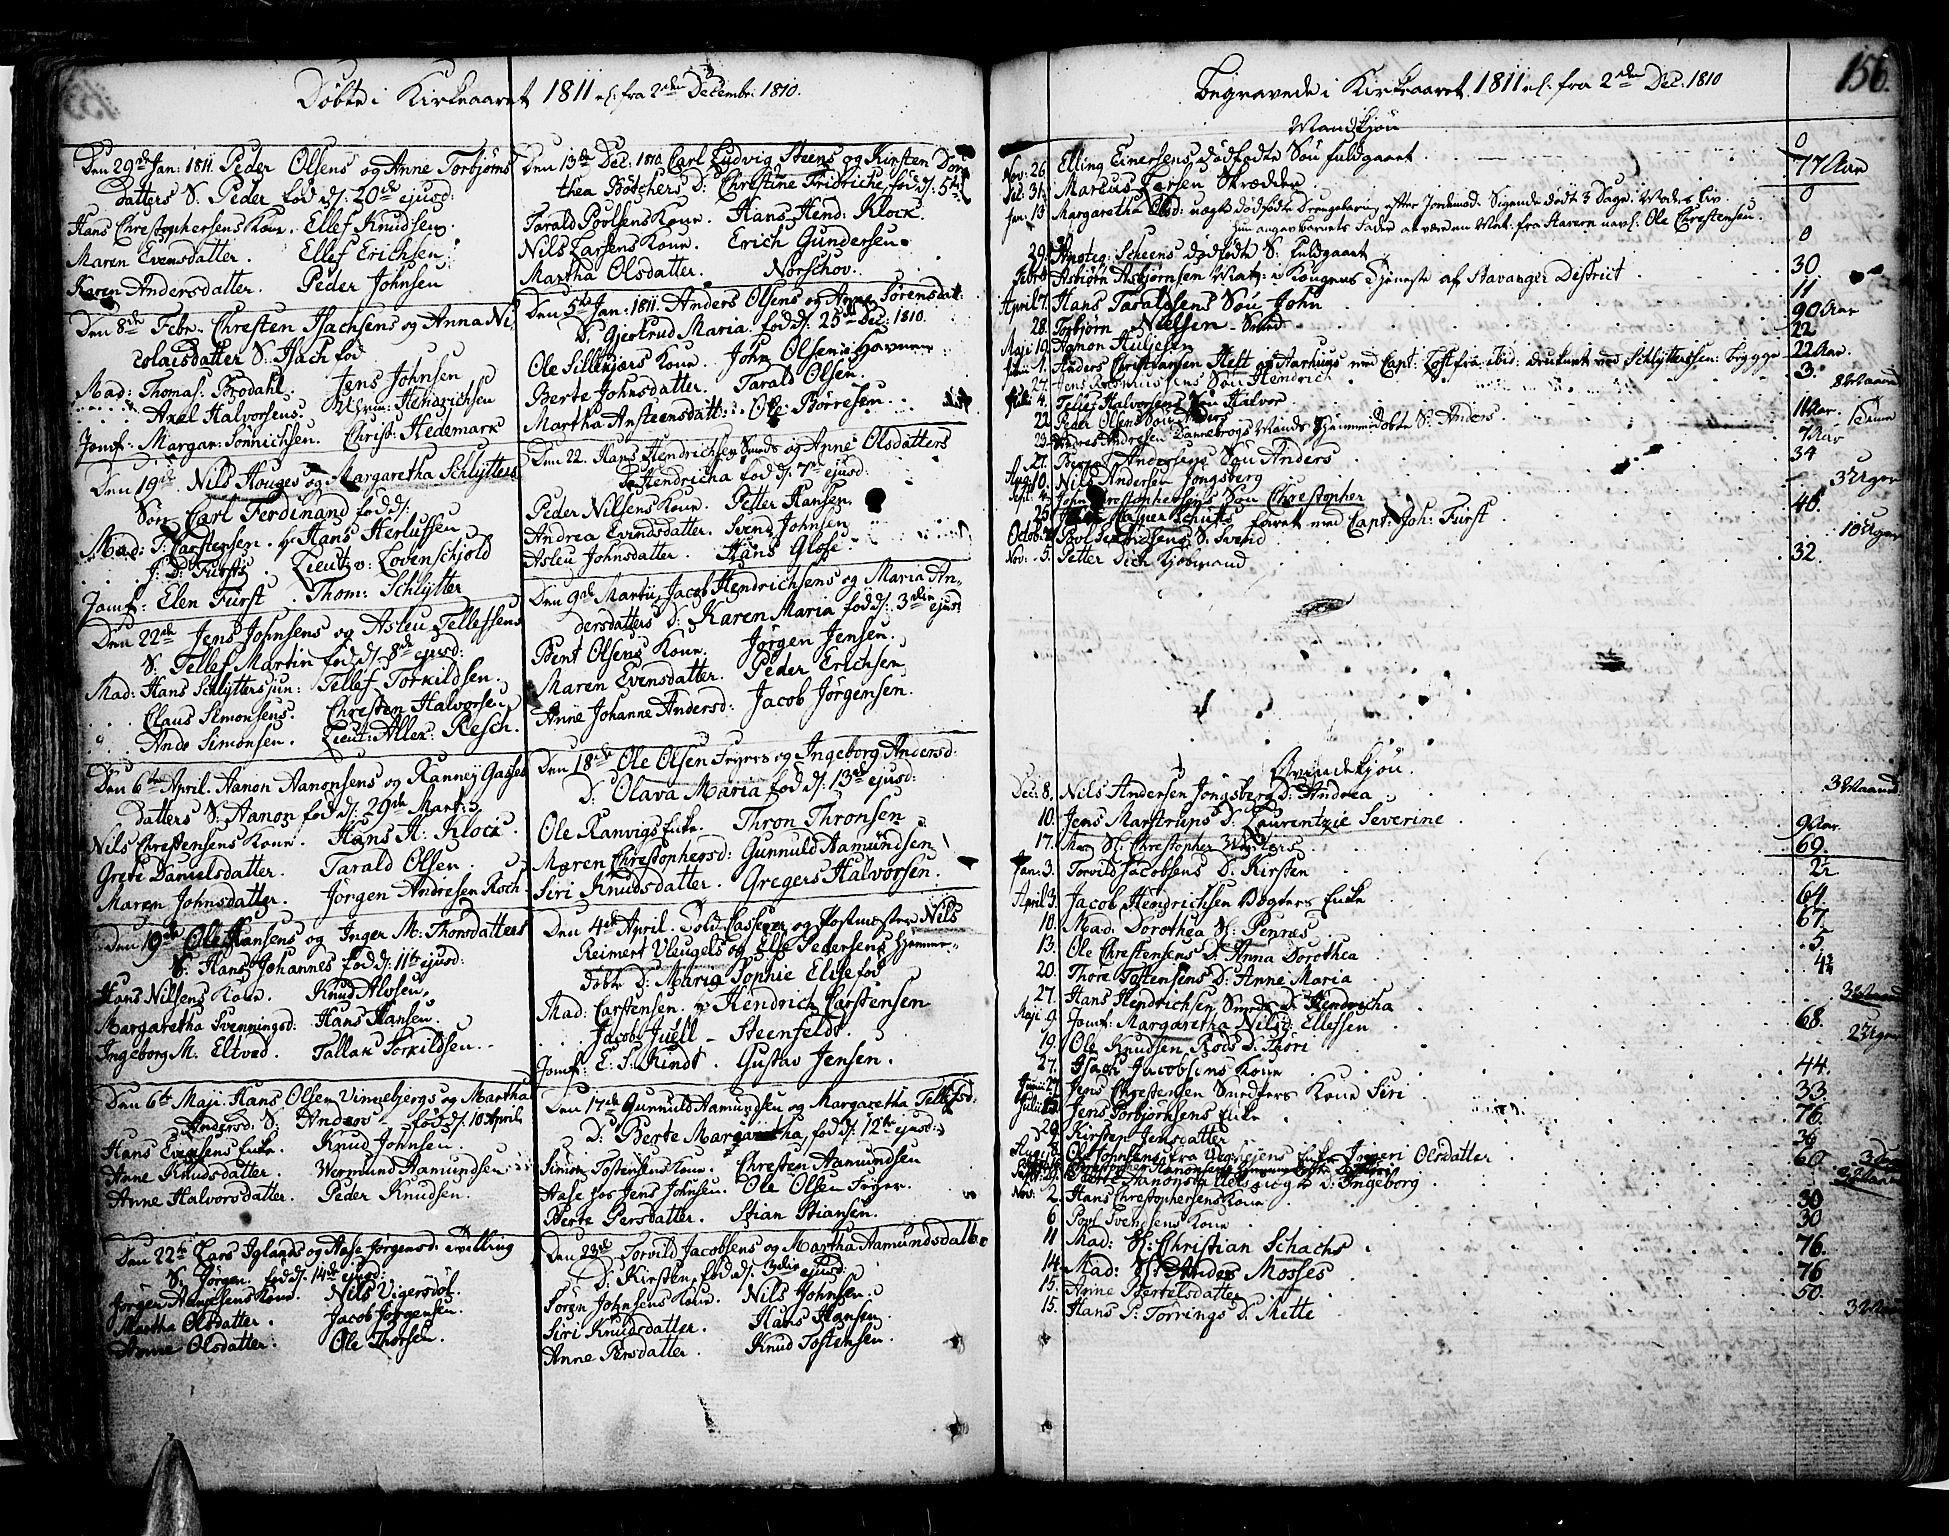 Døbte i Kirkeaaret 1811 els: fra 2den Decembr: 1810.
Den 29de Jan: 1811. Peder Olsens og Anne Torbjørns
Datters S. Peder fød d/: 20de ejusd:
Hans Chrestophersens Kone. Ellef Knudsen.
Maren Evensdatter. Ellef Erichsen.
Karen Andersdatter. Peder Johnsen
Den 8de Febr. Chresten Isachsens og Anna Ni,
colaisdatter S. Isach fød
Mad: Thomas: Brodahl. Jens Johnsen
Axel Halvorsens. Hendrichsen
Jomf: Margar: Tønnichsen. Christ: Hedemark
Den 19de Nils Houges og Margaretha Schlytters
Søn Carl Ferdinand fød d/:
Mad: T: Carstensen. Hans Herlufsen
J. D: Fürsts. Lieut: v: Lövenschjold
Jomf: Elen Fürst. Thom: Schlytter
Den 22de Jens Johnsens og Asleu Tellefsens
S. Tellef Martin fød d/: 8de ejusd:
Mad: Hans Schlytters jun: Tellef Torkildsen.
Claus Simonsens. Chresten Halvorsen
And: Simonsen. Lieut: Allex: Resch.
Den 6te April. Aanon Aanonsens og Ranney Gasses
datters S: Aanon fød d/: 29de Mart:
Nils Chrestensens Kone. Hans A: Klock.
Grete Danielsdatter. Tarald Olsen
Maren Johnsdatter. Jørgen Andresen Koch
Den 19de Ole Hansens og Inger M: Thorsdatters
S. Hans Johannes fød d/: 11te ejusd:
Hans Nilsens Kone. Knud Alvsen.
Margaretha Svenningsd: Hans Hansen.
Ingeborg M. Eltved. Tallak Torkildsen.
Den 6te Maji Hans Olsen Vinnebjergs og Martha
Andersd: S: Andrea fød d/: 10 April
Hans Evensens Enke. Knud Johnsen.
Anne Knudsdatter. Wermund Aamundsen
Anne Halvorsdatter. Peder Knudsen.
Den 22de Lars Iglands og Aase Jørgensd: Tvilling
S. Jørgen fød d/: 14de ejusd:
Jørgen Aanensens Kone. Nils Vigersdøl.
Martha Olsdatter. Jacob Jørgensen.
Anne Olsdatter. Ole Thorsen.
Den 13de Dec: 1810. Carl Ludvig Steens og Kirsten Doro
thea Bötchers D: Christine Fridriche fød d/: 5te
Tarald Poulsens Kone. Hans Hend: Klock.
Nils Larsens Kone. Erich Gundersen.
Martha Olsdatter. Norschov.
Den 5te Jan: 1811. Anders Olsens og Anne Sørensdat:
D. Gjertrud Maria fød d/: 25de Dec: 1810.
Ole Sillekjærs Kone. John Olsen i Havnen
Berte Johnsdatter. Tarald Olsen.
Martha Ansteensdatt: Ole Børresen.
Den 22. Hans Hendrichsen Smeds og Anne Olsdatters
D. Hendricha fød d/: 7de ejusd:
Peder Nilsens Kone. Petter Hansen
Andrea Evindsdatter. Svend Johnsen
Asleu Johnsdatter. Hans Glose.
Den 9de Martii Jacob Hendrichsens og Maria An,
dersdatters D: Karen Maria fød d/: 3die ejusd
Bent Olsens Kone. Jørgen Jensen.
Maren Evensdatter. Peder Erichsen
Anne Johanne Andersd: Jacob Jørgensen.
Den 18de Ole Olsen Fryers og Ingeborg Andersd:
D: Olava Maria fød d/: 13de ejusd:
Ole Ranvigs Enke. Thron Thronsen
Maren Chrestophersd: Gunnuld Aamundsen
Siri Knudsdatter. Gregers Halvorsen.
Den 4de April. Told Casserer og Postmester Nils
Reimert Vleugels og Else Pedersens hjemme-
døbte D: Maria Sophie Elise fød
Mad: Carstensen. Hendrich Carstensen
Jacob Juell – Steenfeldt.
Jomf: E: S: Kindt. Gustav Jensen.
Den 17de Gunnuld Aamundsen og Margaretha Tellefsd:
D: Berte Margaretha, fød d/: 12te ejusd:
Simon Tostensens Kone. Chresten Aamundsen
Aase hos Jens Johnsen. Ole Olsen Fryer.
Berte Persdatter. Stian Stiansen.
Den 23de Torvild Jacobsens og Martha Aamundsdatter
D: Kirsten, fød d/: 3die ejusd:
Søren Johnsens Kone. Nils Johnsen.
Siri Knudsdatter. Hans Hansen
Anne Persdatter. Knud Tostensen.
156.
Begravede i Kirkeaaret 1811 els: fra 2den Dec: 1810
Mandkjøn
Nov: 26. Elling Einersens dødfødte Søn fuldgaaet. 0
Dec. 31. Marcus Larsen Skrædder 77 Aar
Jan: 13 Margaretha Olsd: uægte dødfødte Drengebarn, efter Jordemod: Sigende dødt 3 Dage i Moders Liv. 0
hun angav barnets Fader at være en Mat: fra Havern navnl: Ole Chrestensen.
29. Apoteg: Scheens dødfødte S: fuldgaaet 0
Febr: Asbjørn Asbjørnsen Mat: i Kongens Tjeneste af Stavanger District 30
April 7. Hans Taraldsens Søn John 11
28. Torbjørn Nielsen Smed 90 Aar
Maji 19. Aanon Huljesen 22
Junii 1. Anders Christiansen Heft af Aarhuus med Capt: Toft fra ibid: druknet ved Schlytterssen: brygge 22 Aar.
27. Jens Søn Hendrich 3.
Juli: 4. Tellef Halvorsens Søn Halvor 8 Maan
22. Peder Olsens Søn Anders 11 Aar.
23. Andres Andresen Dannebrogs Mands hjemmedøbte S: Anders
27. Bertel Andersens Søn Anders 7 Aar
Aug: 10. Nils Andersen Jongsberg 34
Sept: 4. John Chrestophersens Søn Chrestopher 3 Uger
25. Casper Schults faret med Capt: Joh: Fürst 40.
Octob: Poul Svendsens S: Svend 10 Uger
Nov: 5. Petter Dich Kjøbmand 32.
Qvindekjøn.
Dec: 8. Nils Andersen Jongsberg D: Andrea 3 Maaned
10. Jens Marstrups D: Laurentzie Severine 9 Aar.
17. Mad Sl: Christopher 69.
Jan: 3. Torvild Jacobsens D: Kirsten 2½
April 3. Jacob Hendrichsen Vogters Enke 64.
10. Mad: Dorothea Sl: Penræs 67.
13. Ole Chrestensens D: Anna Dorothea 5
20. Thore Tostensens D: Anne Maria
27. Hans Hendrichsen Smeds D: Hendricha 3 Maaned
Maji 9. Jomf: Margaretha Nilsd: Ellefsen 68.
19. Ole Knudsen Røds D: Thori 2 Uger
27. Isach Jacobsens Kone 44.
Junii 27. Jens Chrestensen Snedkers Kone Siri 33.
Julii Jens Torbjørnsens Enke 76.
20. Kirsten Jensdatter 36
Ole Johnsens fra Vegheiens Enke Ingeri Olsdatter 60
D: Ingeborg
Nov: 2. Hans Chrestophersens Kone 30
6. Povl Svendsens Kone 30
11 Mad: Sl: Christian Schachs 76.
14. Mad: Sl: Andes Mosses 76
15. Anne Bertelsdatter 50.
15. Hans P: Torrings D. Mette 3 Maan